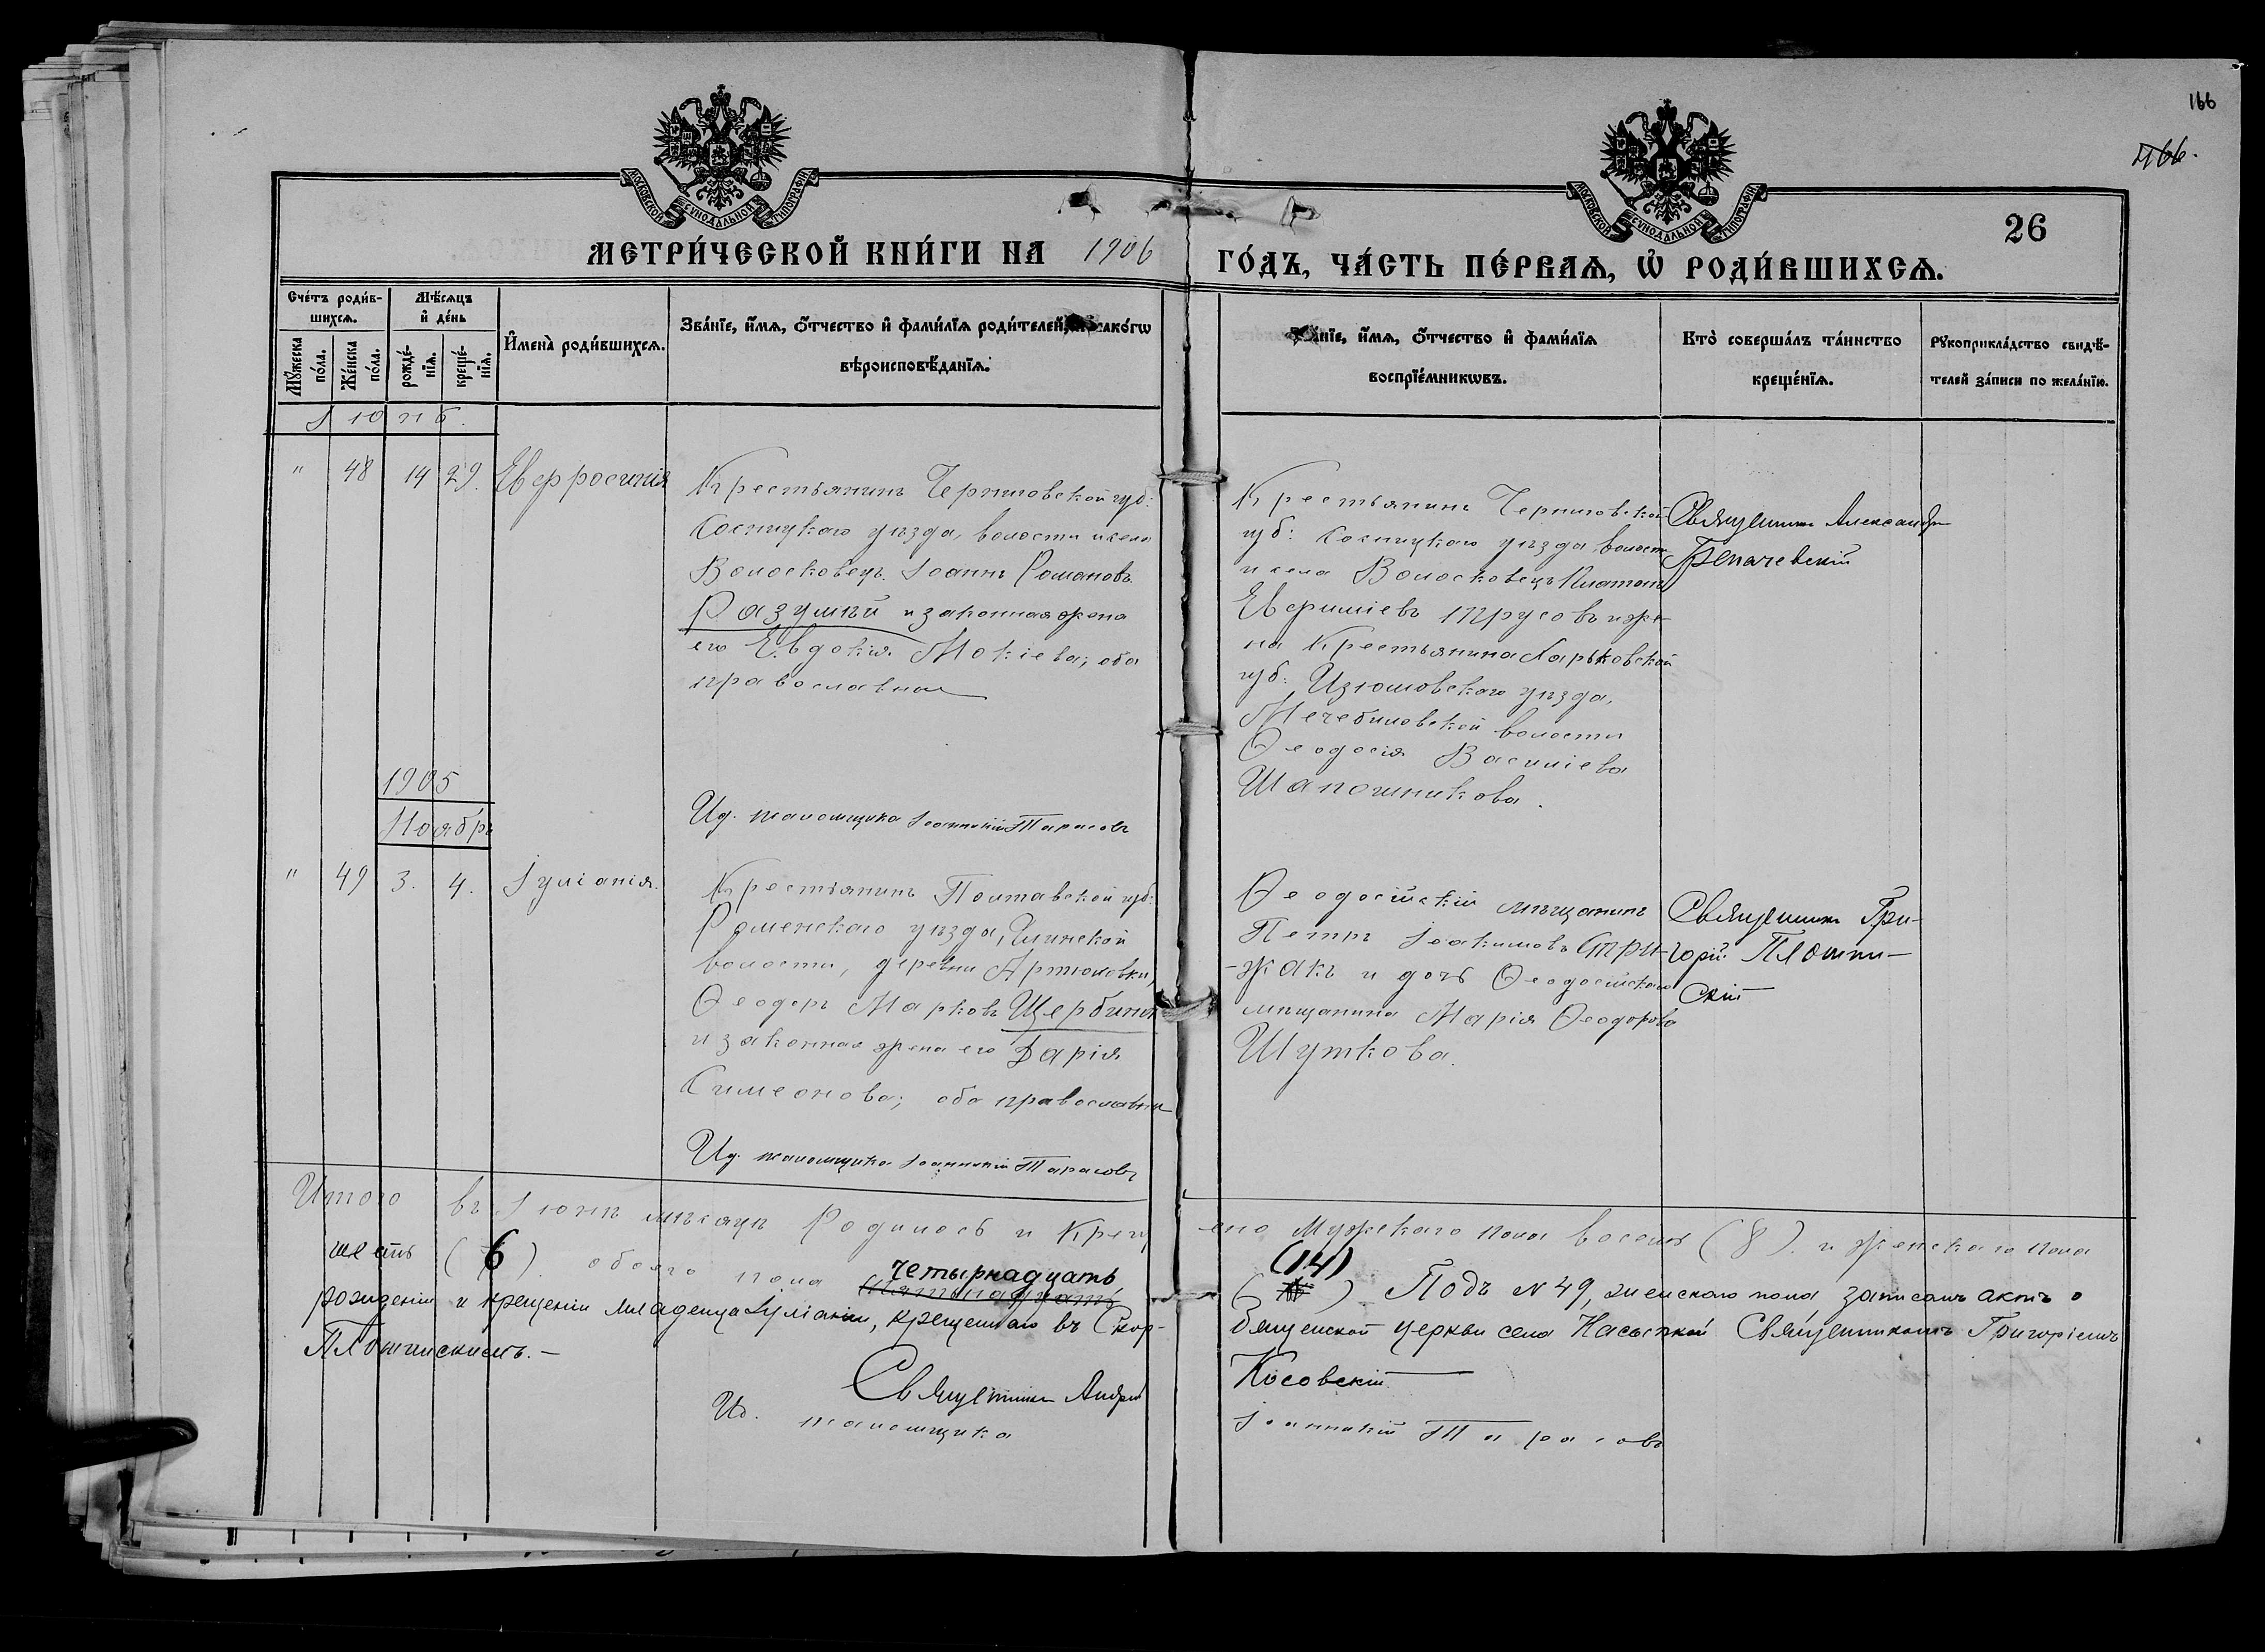 166
166.
МОСКОВСКОЙ СѴНОДАЛЬНОЙ ТИПОГРАФІИ
МОСКОВСКОЙ СѴНОДАЛЬНОЙ ТИПОГРАФІИ
26
МЕТРИ́ЧЕСКОЙ КНИ́ГИ НА 1906
ГО́ДЪ, ЧА́СТЬ ПЕ́РВАѦ, Ѡ҆ РОДИ́ВШИХСѦ.
Сче́тъ роди́в-
шихсѧ.
Мѹ́жеска
по́ла.
Же́нска
по́ла.
Мѣ́сѧцъ
и҆ де́нь
рожде́-
нїѧ.
креще́-
нїѧ.
И҆мена̀ роди́вшихсѧ.
Зва́нїе, и҆́мѧ, ѻ҆́тчество и҆ фами́лїѧ роди́телей, и҆ како́гѡ
вѣроисповѣ́данїѧ.
Зва́нїе, и҆́мѧ, ѻ҆́тчество и҆ фами́лїѧ
воспрїе́мникѡвъ.
Кто̀ соверша́лъ та́инство
креще́нїѧ.
Рꙋкоприкла́дство свидѣ́-
телей за́писи по жела́нїю.
Іюнь.
" 48 14 29. Евфросинія
Крестьянинъ Черниговской губ:
Сосницкаго уѣзда, волости и села
Волосковецъ Іоаннъ Романовъ
Разумный и законная жена
его Евдокія Мокіева; оба
православные
Ид. псаломщика Іоанникій Тарасовъ
Крестьянинъ Черниговской
губ: Сосницкаго уѣзда волости
и села Волосковецъ Платонъ
Евфиміевъ Трусовъ и же-
на Крестьянина Харьковской
губ: Изюмовскаго уѣзда,
Мечебиловской волости
Ѳеодосія Василіева
Шапошникова.
Священникъ Александръ
1905
Ноябрь
" 49 3. 4. Іуліанія.
Крестьянинъ Полтавской губ:
Роменскаго уѣзда, Глинской
волости, деревни Артюховки,
Ѳеодоръ Марковъ Щербина
и законная жена его Дарія
Симеонова; оба православные
Ид. псаломщика Іоанникій Тарасовъ
Ѳеодосійскій мѣщанинъ
Петръ Іоакимовъ Стри-
-жакъ и дочь Ѳеодосійскаго
мѣщанина Марія Ѳеодорова
Шуткова.
Священникъ Гри-
горій Плотин-
скій
Итого въ Іюнѣ мѣсяцѣ Родилось и Крещено Мужскаго пола восемь (8). и женскаго пола
шесть (6). обоего пола четырнадцать (14)
пятнадцать Подъ № 49, женскаго пола записанъ актъ о
рожденіи и крещеніи младенца Іуліаніи, крещеннаго въ Скор-
бященской церкви села Насыпкой Священникомъ Григоріемъ
Плотинскимъ.—
Священникъ Андрей Косовскій
Ид. псаломщика Іоанникій Тарасовъ